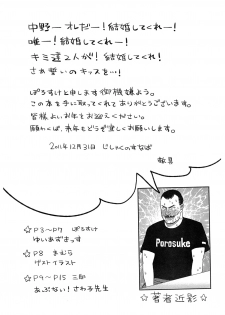 中野ーオレだー！結婚してくれー！
唯ー！結婚してくれー！
キミ達2人が！結婚してくれー！
さあ誓いのキッスを…！
ぽろすけと申します御機嫌よう。
この本を手に取ってくれてありがとうございます。
皆様よいお年をお迎えください。
願わくば、来年もどうぞ宜しくお願いします。
2011年12月31日 じしゃくのすなば
敬具
Porosuke
☆P3〜P7 ぽろすけ
ゆいあずまっす
☆P8 まむら
ゲストイラスト
☆P9〜P15 三助
あぶない！さわ子先生
☆著者近影☆